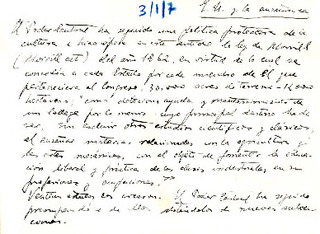 3/1/7
E.U. y la
El Poder central ha seguido una política protectora de la
cultura e hizo efecto en este sentido la ley de Morrill
(Morrill act) del año 1862, en virtud de la cual se
concedía a cada Estado por cada miembro de él que
perteneciera al Congreso, 30.000 acres de terreno
hectáreas, "como dotación, ayuda y mantenimiento de
un College por lo menos cuyo principal destino ha de
ser, sin excluir otros estudios científicos y clásicos,
el enseñar materias relacionadas con la agricultura y
las artes mecánicas, con el objeto de fomentar la educación
liberal y práctica de las clases industriales en sus
profesiones y ocupaciones."
El Poder Central ha seguido
de nuevas